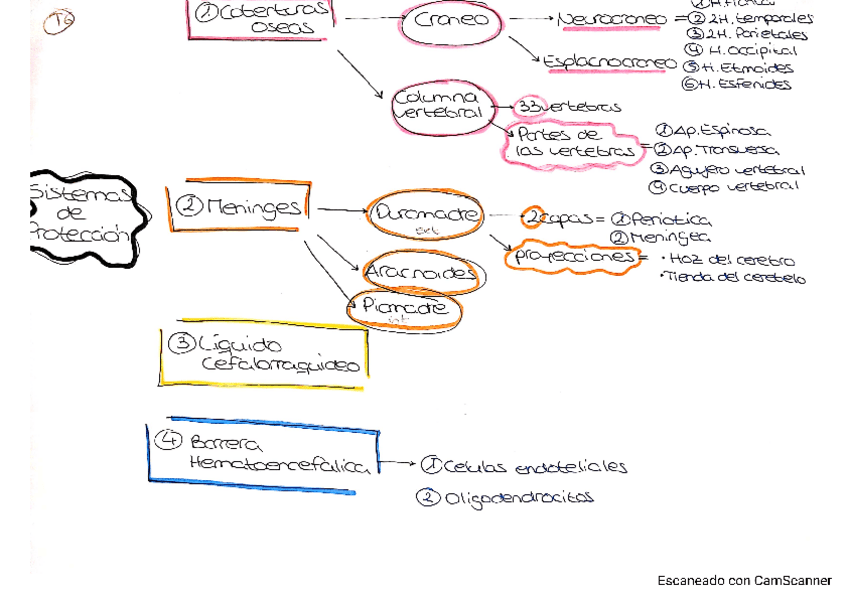 T6
① Coberturas
Oseas
Craneo
Neurocraneo =
① H. Frontal
② 2H. temporales
③ 2H. Parietales
④ H. Occipital
⑤ H. Etmoides
⑥ H. Esfenides
Esplacnocraneo
Columna
vertebral
33 vertebras
Partes de
las vertebras =
① Ap. Espinosa
② Ap. Transversa
③ Agujero vertebral
④ Cuerpo vertebral
Sistemas
de
Protección
② Meninges
Duramadre
ext
2 capas = ① Periotica
② Meningea
proyecciones =
· Hoz del cerebro
· Tienda del cerebelo
Aracnoides
Piamadre
int
③ Líquido
Cefalorraquideo
④ Barrera
Hematoencefalica
① Celulas endoteliales
② Oligodendrocitos
Escaneado con CamScanner